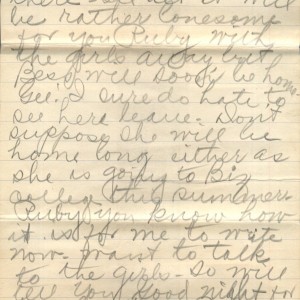 there
will
be rather lonesome
for you Ruby with
the girls away but
Bess will soon be home
Gee! I sure do hate to
see here leave - Don't
suppose she will be
home long either as
she is going to Biz
college this summer-
Ruby you know how
it is for me to write
now - want to talk
to the girls - So will
tell you good night - for